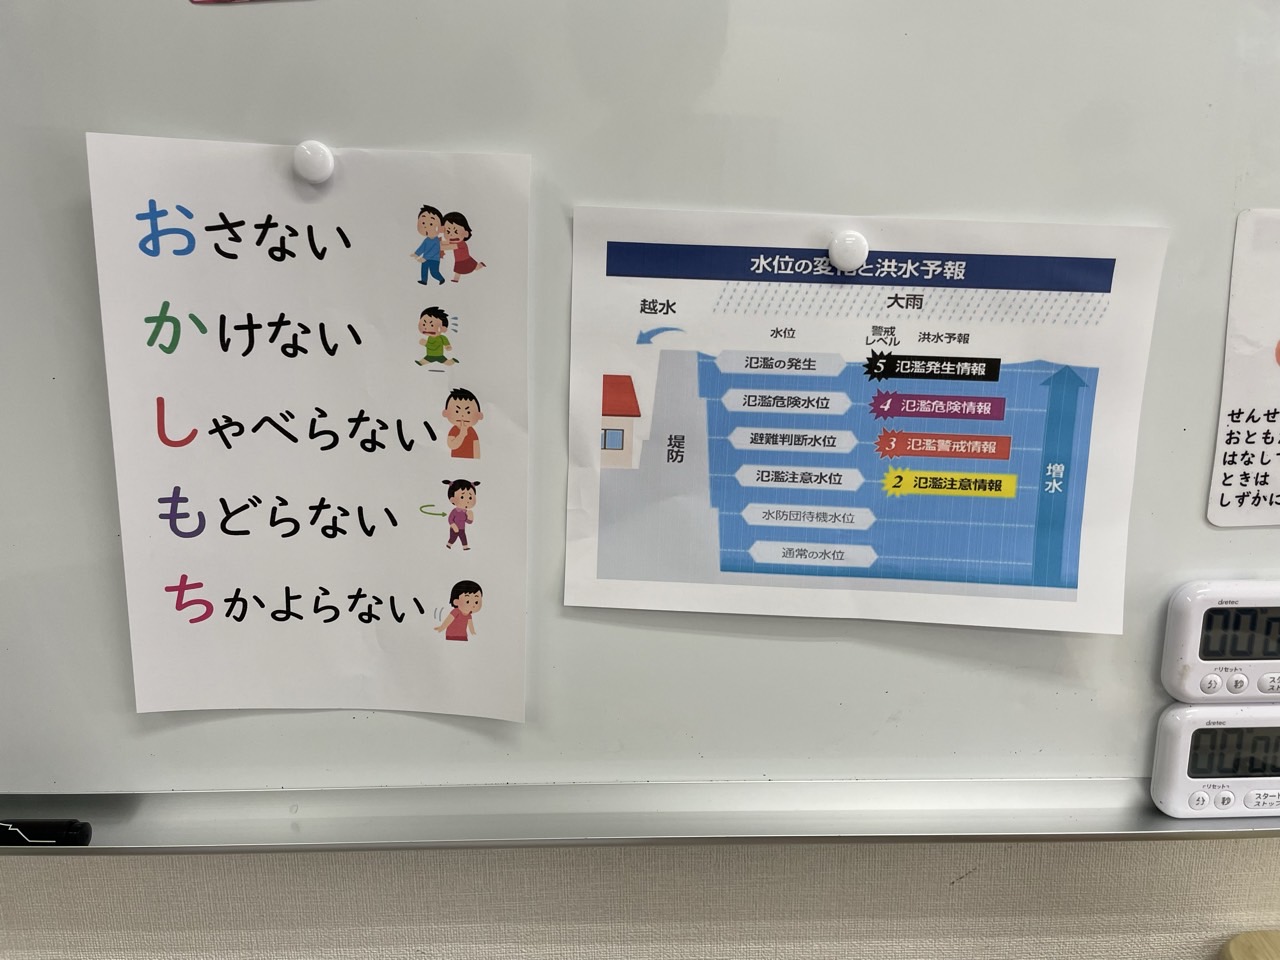 おさない
かけない
しゃべらない
もどらない
ちかよらない
水位の変化と洪水予報
大雨
越水
水位
警戒
レベル
洪水予報
氾濫の発生
5 氾濫発生情報
氾濫危険水位
4 氾濫危険情報
避難判断水位
3 氾濫警戒情報
氾濫注意水位
2 氾濫注意情報
水防団待機水位
通常の水位
堤防
増水
せんせ
おとも
はなして
ときは
しずかに
dretec
リセット
分
秒
dretec
リセット
分
秒
スタート
ストップ